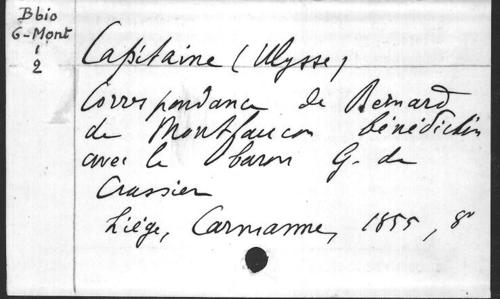 Bbio
G-Mont
1
2
Capitaine (Ulysse)
Correspondance de Bernard
de Montfaucon bénédictin
avec le baron G. de
Crassier
Liége, Carmanne, 1855, 8°